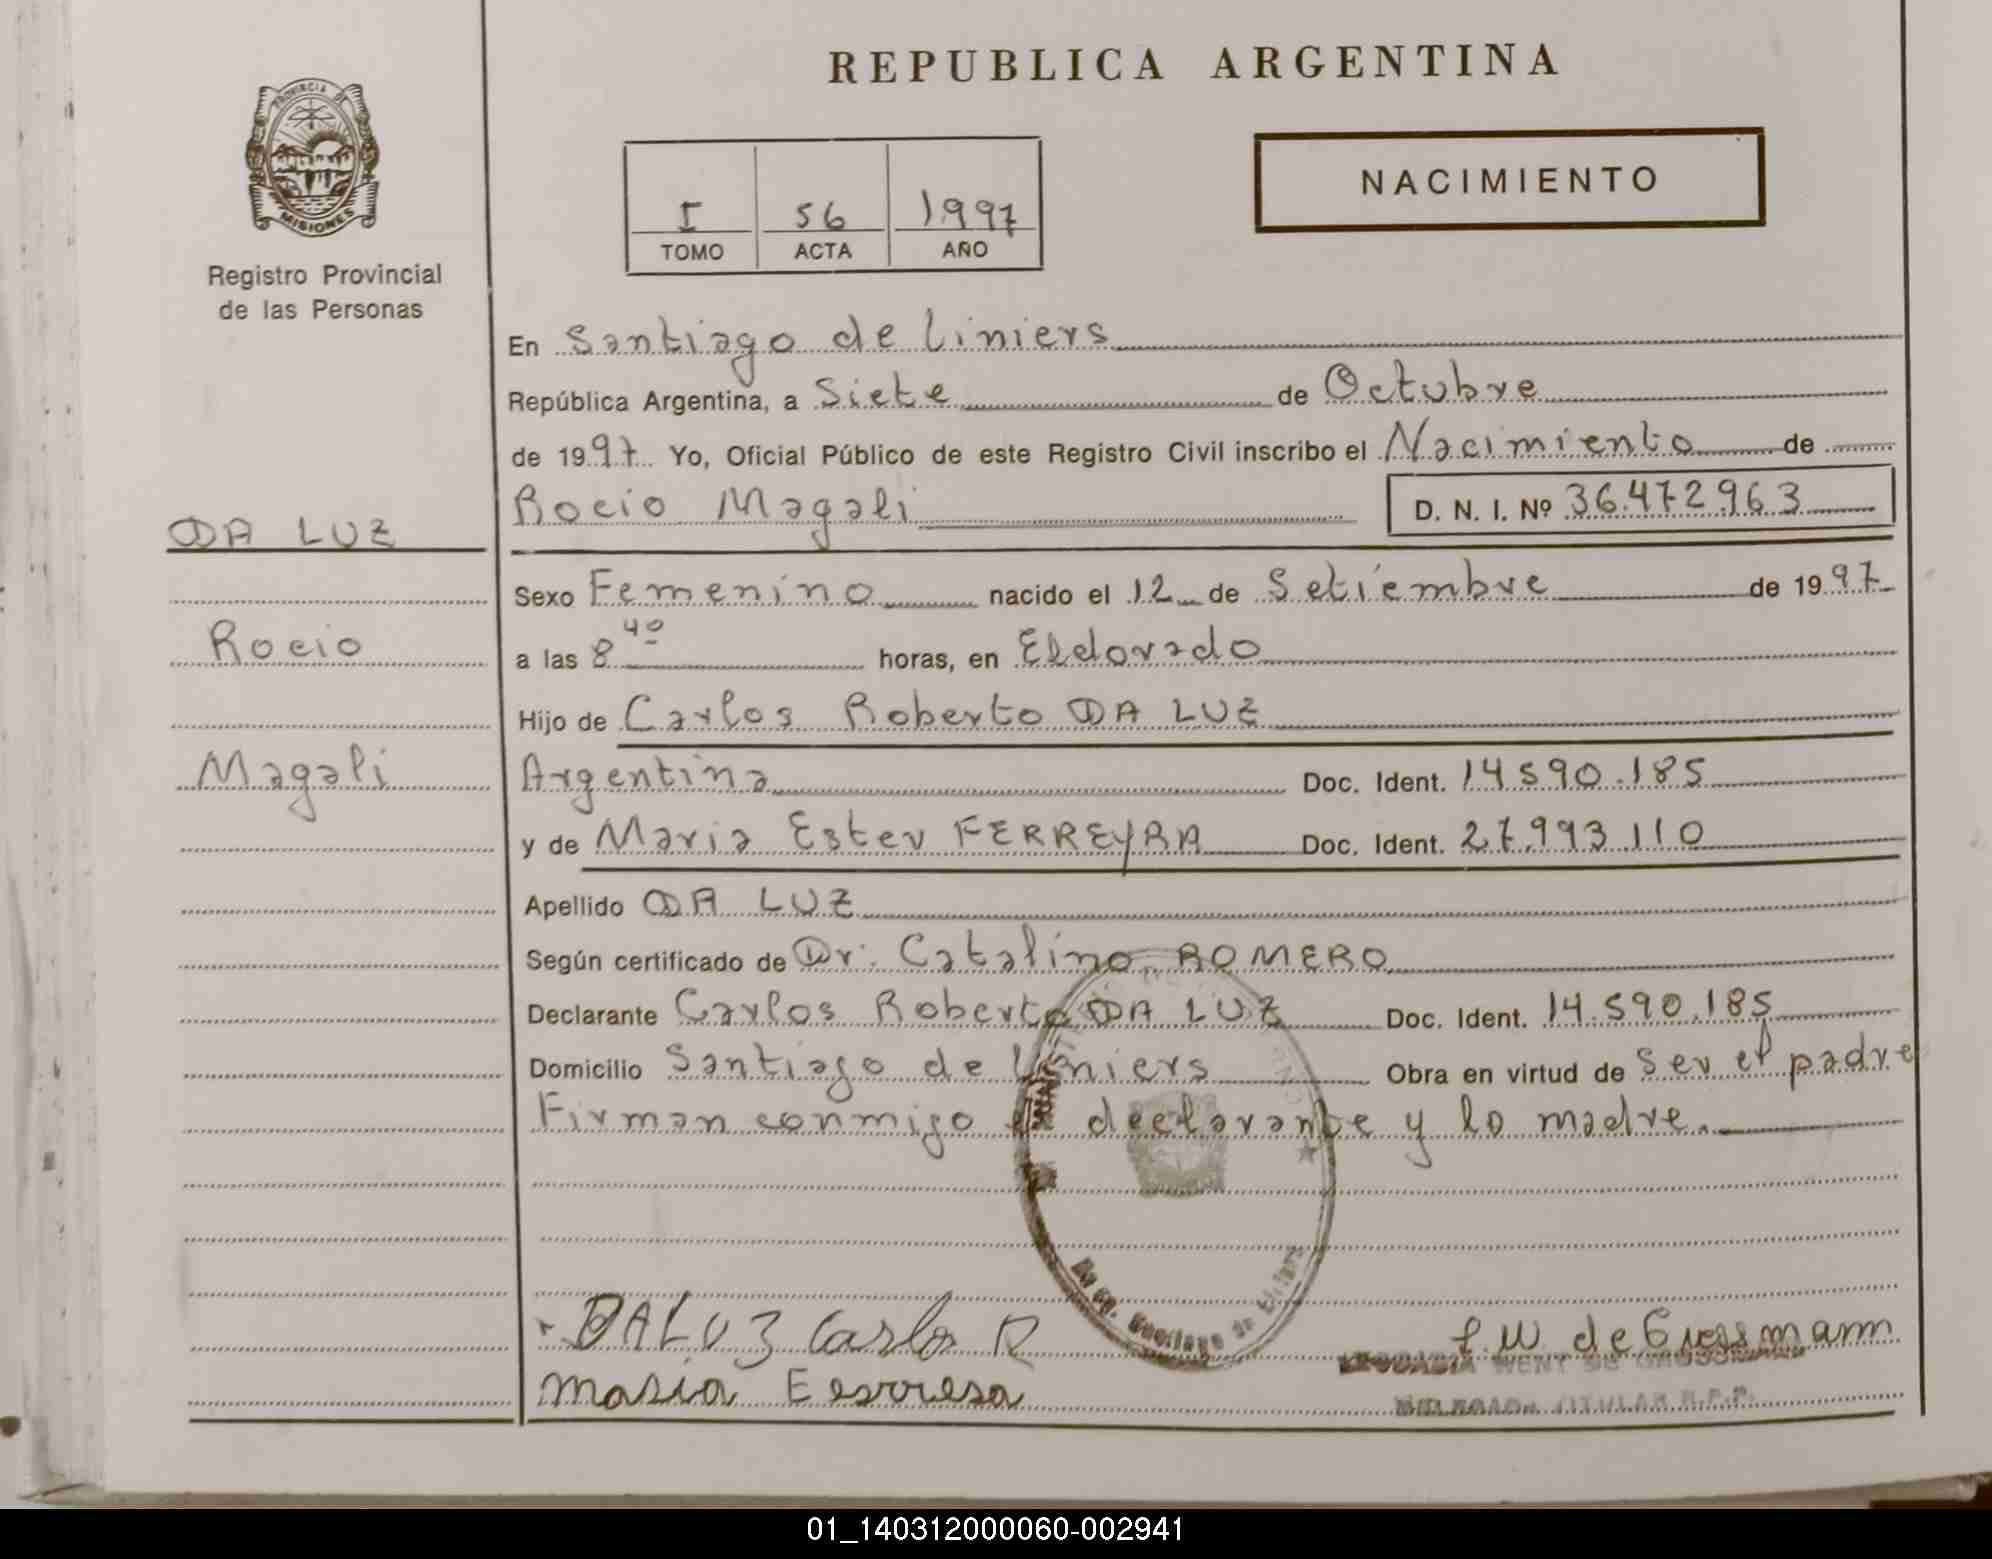 REPUBLICA ARGENTINA
PROVINCIA DE
MISIONES
Registro Provincial
de las Personas
NACIMIENTO
I 56 1997
TOMO ACTA AÑO
En Santiago de Liniers
República Argentina, a Siete de Octubre
de 1997 Yo, Oficial Público de este Registro Civil inscribo el Nacimiento de
Rocio Magali D. N. I. Nº 36.472.963
DA LUZ
Sexo Femenino nacido el 12 de Setiembre de 1997
Rocio
a las 8 40 horas, en Eldorado
Hijo de Carlos Roberto DA LUZ
Magali
Argentina Doc. Ident. 14.590.185
y de Maria Ester FERREYRA Doc. Ident. 27.993.110
Apellido DA LUZ
Según certificado de Dr. Catalino ROMERO
Declarante Carlos Roberto DA LUZ Doc. Ident. 14.590.185
Domicilio Santiago de Liniers Obra en virtud de ser el padre
Firman conmigo el declarante y la madre.
Santiago de Liniers
DALUZ Carlos R
L W de Grossmann
WENT DE GROSSMANN
Maria E
TITULAR R.P.P.
01_140312000060-002941